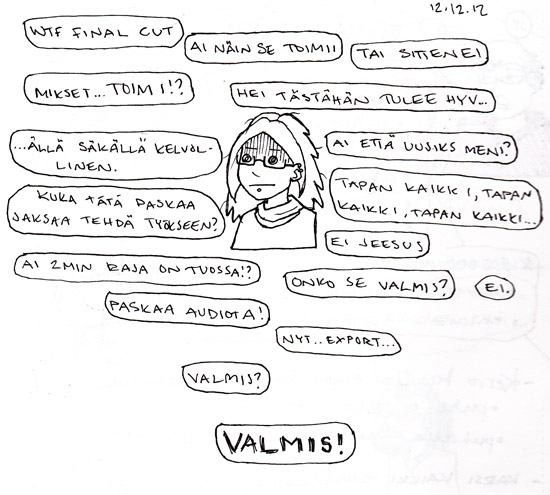 12.12.12
WTF FINAL CUT
AI NÄIN SE TOIMII
TAI SITTEN EI
MIKSET...TOIMI!?
HEI TÄSTÄHÄN TULEE HYV...
...ÄLLÄ SÄKÄLLÄ KELVOL-
LINEN.
AI ETTÄ UUSIKS MENI?
KUKA TÄTÄ PASKAA
JAKSAA TEHDÄ TYÖKSEEN?
TAPAN KAIKKI, TAPAN
KAIKKI, TAPAN KAIKKI...
EI JEESUS
AI 2MIN RAJA ON TUOSSA!?
ONKO SE VALMIS?
EI.
PASKAA AUDIOTA!
NYT..EXPORT...
VALMIS?
VALMIS!